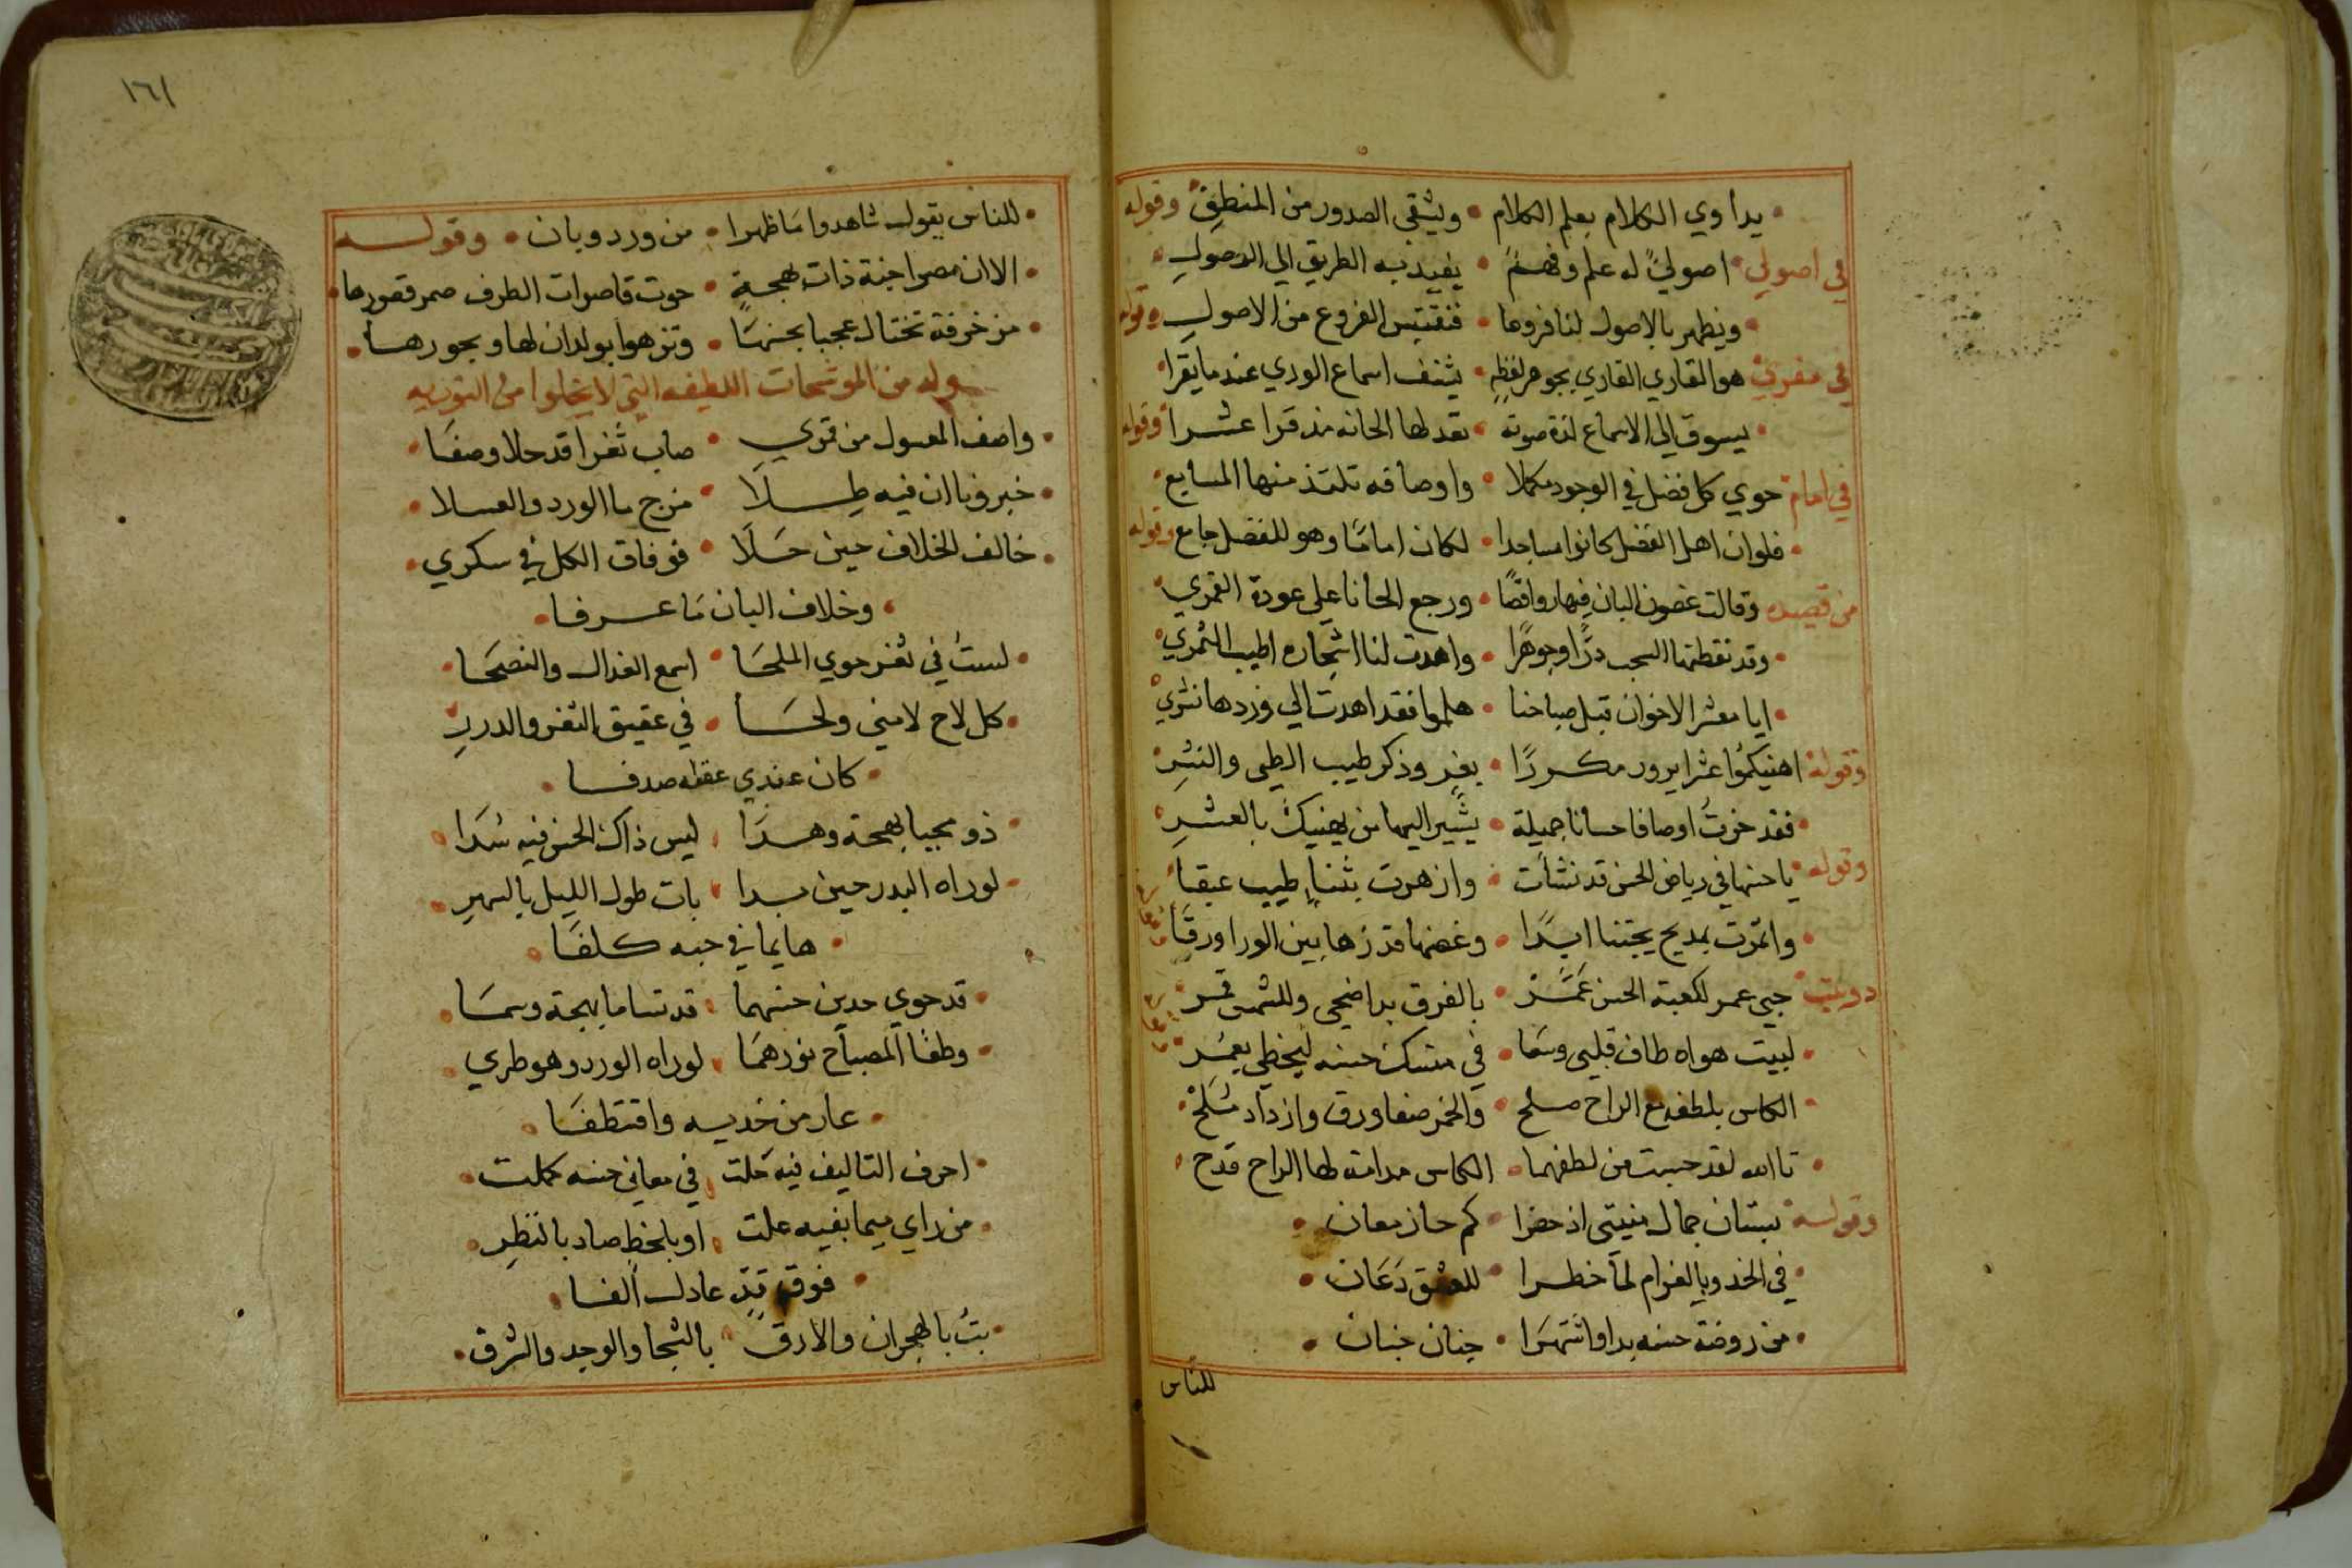 يداوي الكلام بعلم الكلام • ويشقي الصدور من المنطق وقوله
في اصولي اصولي له علم وفهم • يفيد به الطريق الي الوصول
ويظهر بالاصول لنا فروعا • فنقتبس الفروع من الاصول وقوله
في مقري هو القاري القاري بجوهر لفظه • يشنف اسماع الوري عندما يقرا
يسوق الي الاسماع لذة صوته • بعد لها الحانه مذ قرا عشرا وقوله
في امام حوي كل فضل في الوجود مكملا • واوصافه تلتذ منها المسايع
فلوان اهل الفضل كانوا مساجدا • لكان اماما وهو للفضل جامع وقوله
من قصيده وقالت غصون البان فيها رواقصا • ورجع الحانا علي عودة القمري
وقد نقطتها السحب درا وجوهرا • واهدت لنا اشجاره اطيب الثمري
ايا معشر الاخوان قبل صباحنا • هلموا فقد اهدت الي وردها نثري
وقوله اهنيكموا عشرا يرور مكررا • بفز وذكر طيب الطي والنشر
فقد حزت اوصافا حسانا جميلة • يشير اليها من يهنيك بالعشر
وقوله يا حسنها في رياض الحسن قد نشأت • وازهرت بثناء طيب عبقا
واثمرت بمديح يجتنا ابدا • وغصنها قد زها بين الورا ورقا
دوبيت حبي عمر لكعبة الحسن عمر • بالفرق بدا ضحي وللشمس قمر
لبيت هواه طاف قلبي وسعا • في منسك حسنه ليحظي بعمر
الكاس بلطفه مع الراح صلح • والخمر صفا ورق وازداد ملح
تاالله لقد حسبت من لطفهما • الكاس مدامة لها الراح قدح
وقوله بستان جمال منيتي اذ حضرا • كم حاز معان
في الخد وبالغرام لما خطرا • للعشق دعان
من روضة حسنه بدا واشتهرا • جنان جنان
للناس
١٦١
للناس يقول شاهدوا ما ظهرا • من ورد وبان • وقوله
الا ان مصرا جنة ذات بهجة • حوت قاصرات الطرف صمر قصورها
مزخرفة تختال عجبا بحسنها • وتزهوا بولدان لها وبحورها
وله من الموشحات اللطيفه التي لا يخلوا من التوريه
واصف المعسول من قمري • صاب ثغرا قد حلا وصفا
خبرونا ان فيه طلا • مزج ما الورد والعسلا
خالف الخلاف حين حلا • فوفاق الكل في سكري
وخلاف البان ما عرفا
لست في ثغر حوي الملحا • اسمع العذال والنصحا
كل لاح لامني ولحا • في عقيق الثغر والدرر
كان عندي عقله صدفا
ذو محيا بهجة وهدا • ليس ذاك الحسن فيه سدا
لوراه البدر حين بدا • بات طول الليل بالسهر
هايما في حبه كلفا
قد حوي خدين حسنهما • قد تساما بهجة وسما
وطفا المصباح نورهما • لوراه الورد وهو طري
عار من خديه واقتطفا
احرف التاليف فيه حلت • في معاني حسنه كملت
من راي ميما بفيه علت • او بلحظ صاد بالنظر
فوق قد عادل الفا
بت بالهجران والارق • بالشجا والوجد والشرق